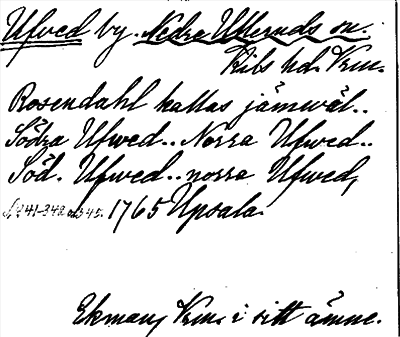 Ufwed by. Nedra Ulleruds sn.
Kils hd. Vrm.
Rosendahl kallas jämwäl..
Södra Ufwed.. Norra Ufwed..
Söd. Ufwed.. norra Ufwed,
s. 341-342 o. 345. 1765 Upsala.
Ekman, Vrm. i sitt ämne.